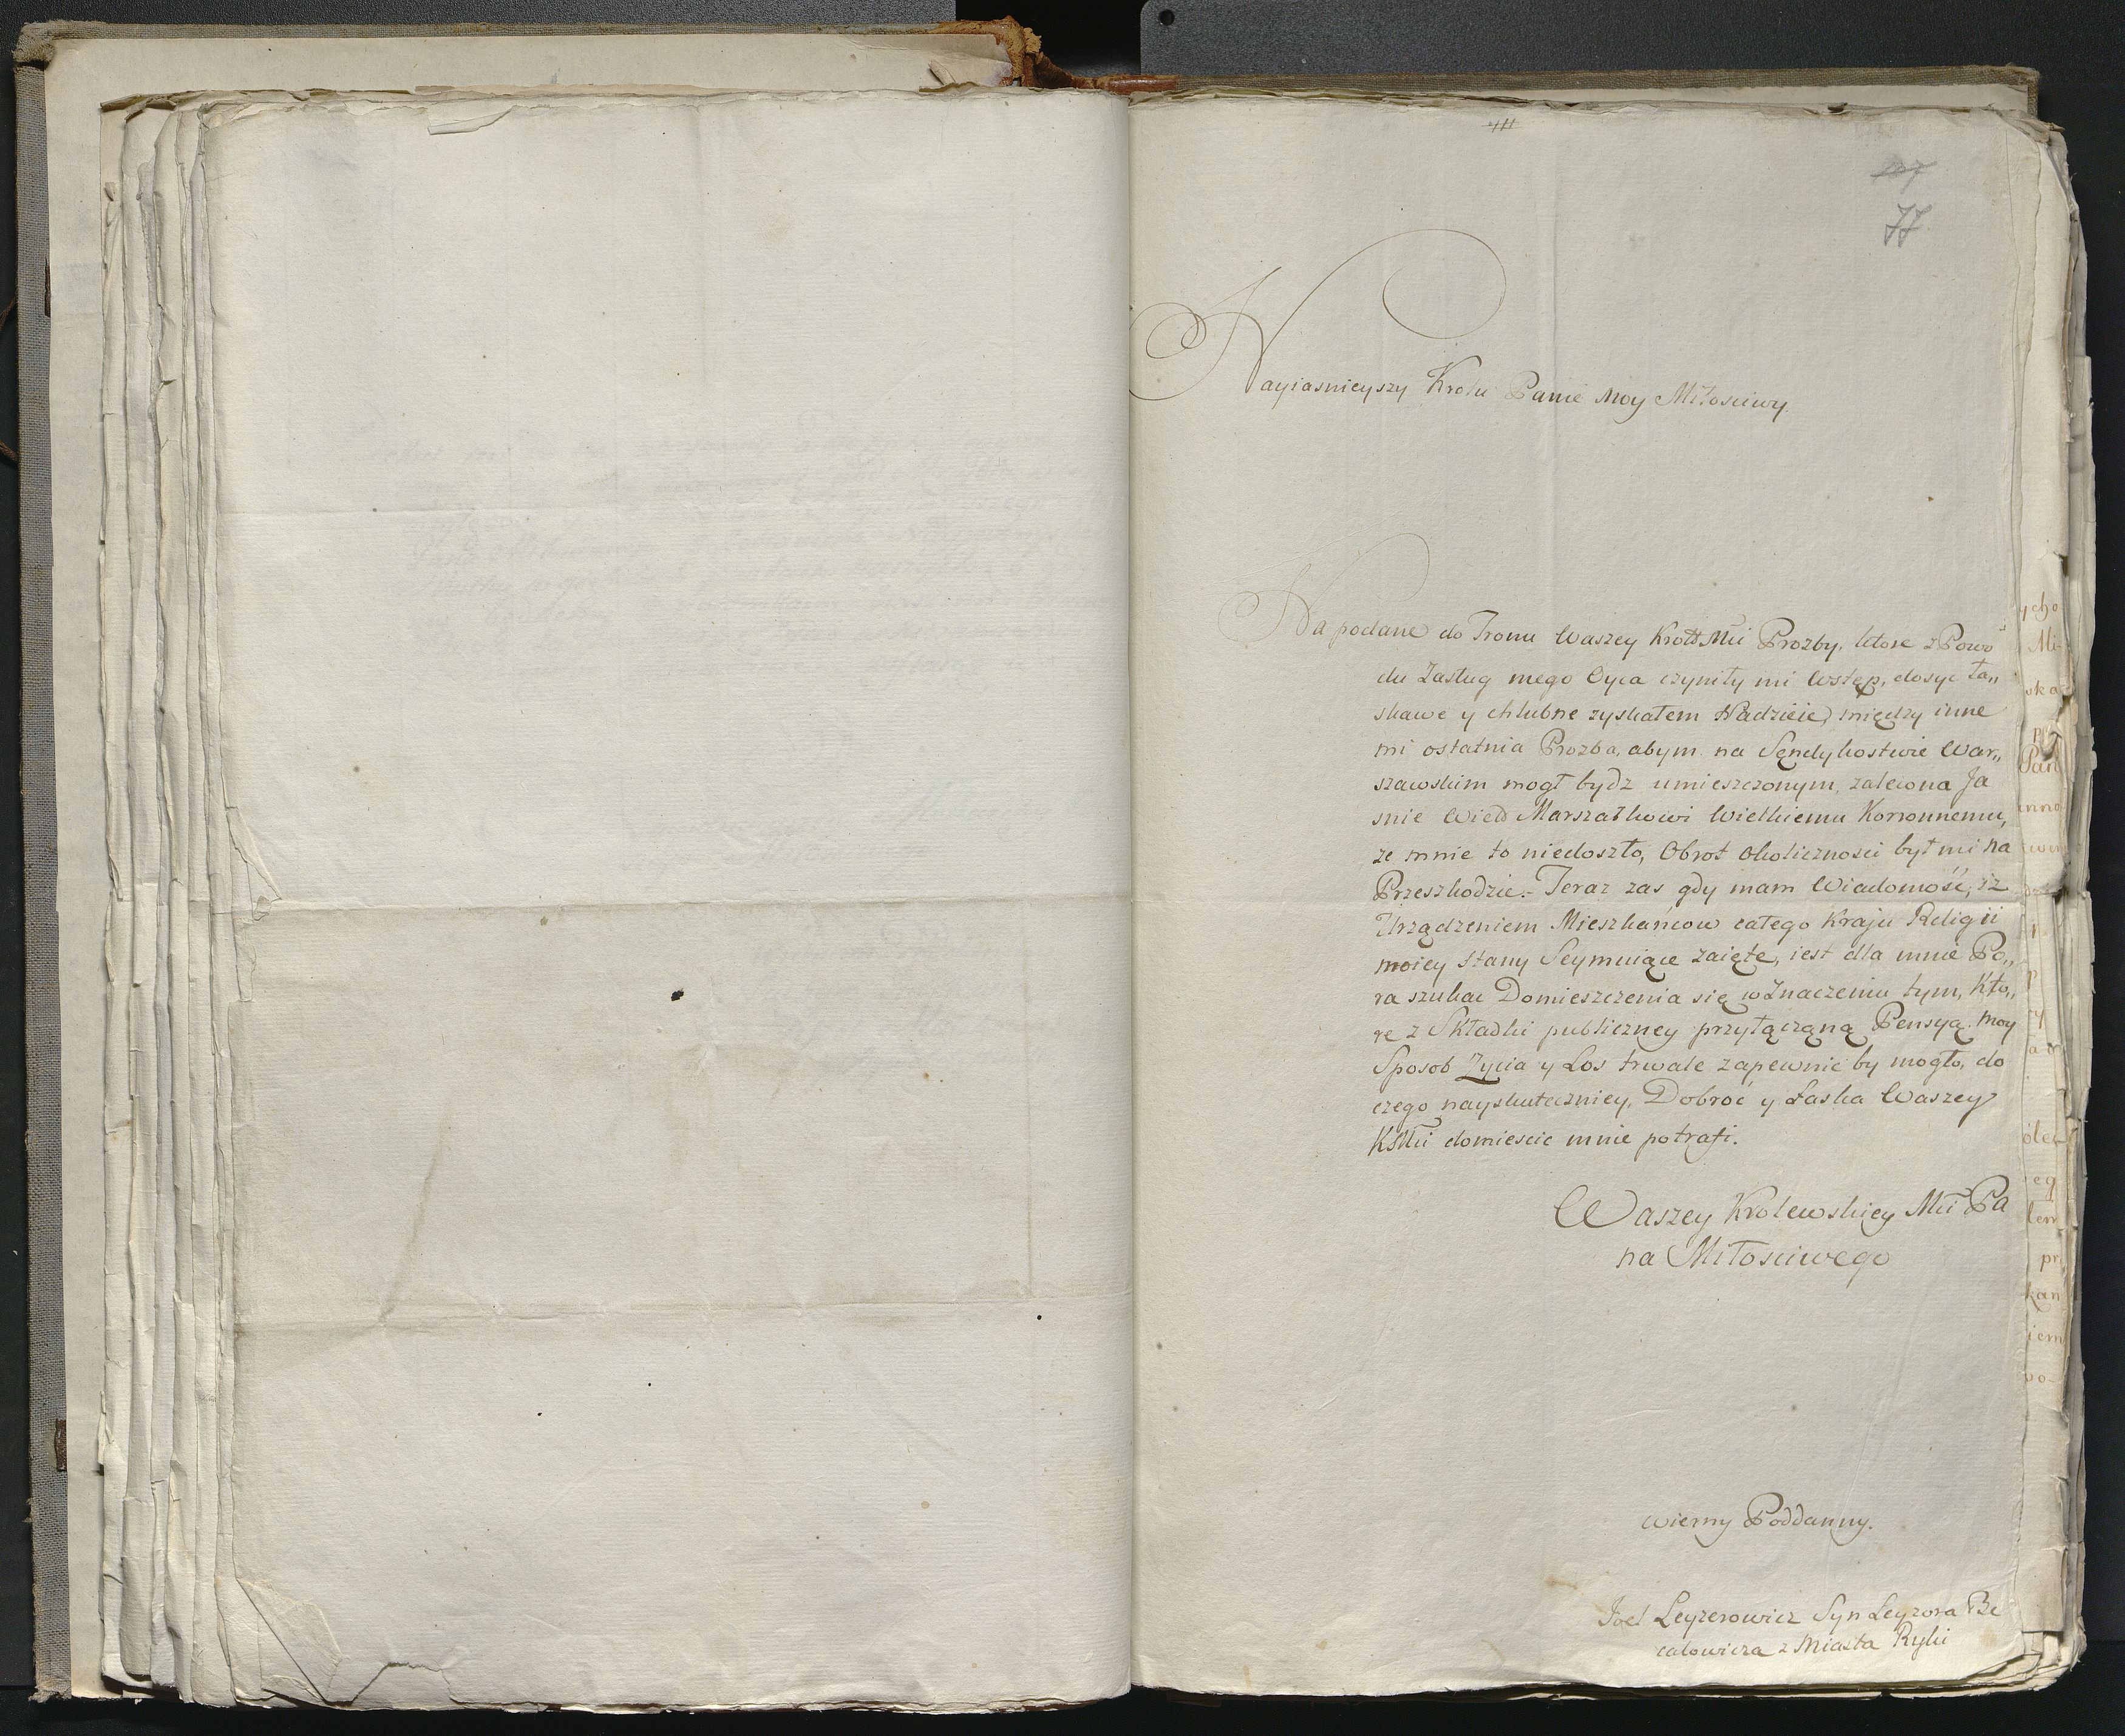 77
Nayiasnieyszy Krolu Panie Moy Miłosciwy.
Na podane do Tronu Waszey KrolSMci Prozby, ktore z Powo
du Zasług mego Oyca czyniły mi Wstęp, dosyc ła„
skawe y chlubne zyskałem Nadzieie, między inne
mi ostatnia Prozba, abym na Sęndykostwie War„
szawskim mogł bydz umieszczonym, zalecona Ja
snie Wielo Marszałkowi Wielkiemu Koronnemu,
ze mnie to niedoszło, Obrot Okoliczności był mi na
Przeszkodzie. Teraz zas gdy mam Wiadomość, iz
Urządzeniem Mieszkańcow całego Kraju Religii
moiey Stany Seymuiące zaięte, iest dla mnie Po„
ra szukac Domieszczenia się w Znaczeniu tym, Kto„
re z Składki publiczney przyłączaną Pensyą. moy
Sposob Zycia y Los trwale zapewnic by mogło, do
czego nayskuteczniey, Dobroć y Łaska Waszey
KSMci domiescic mnie potrafi.
Waszey Krolewskiey Mci Pa
na Miłosciwego
wierny Poddanny.
Joel Leyzerowicz Syn Leyzora Be
calowicza z Miasta Ryki